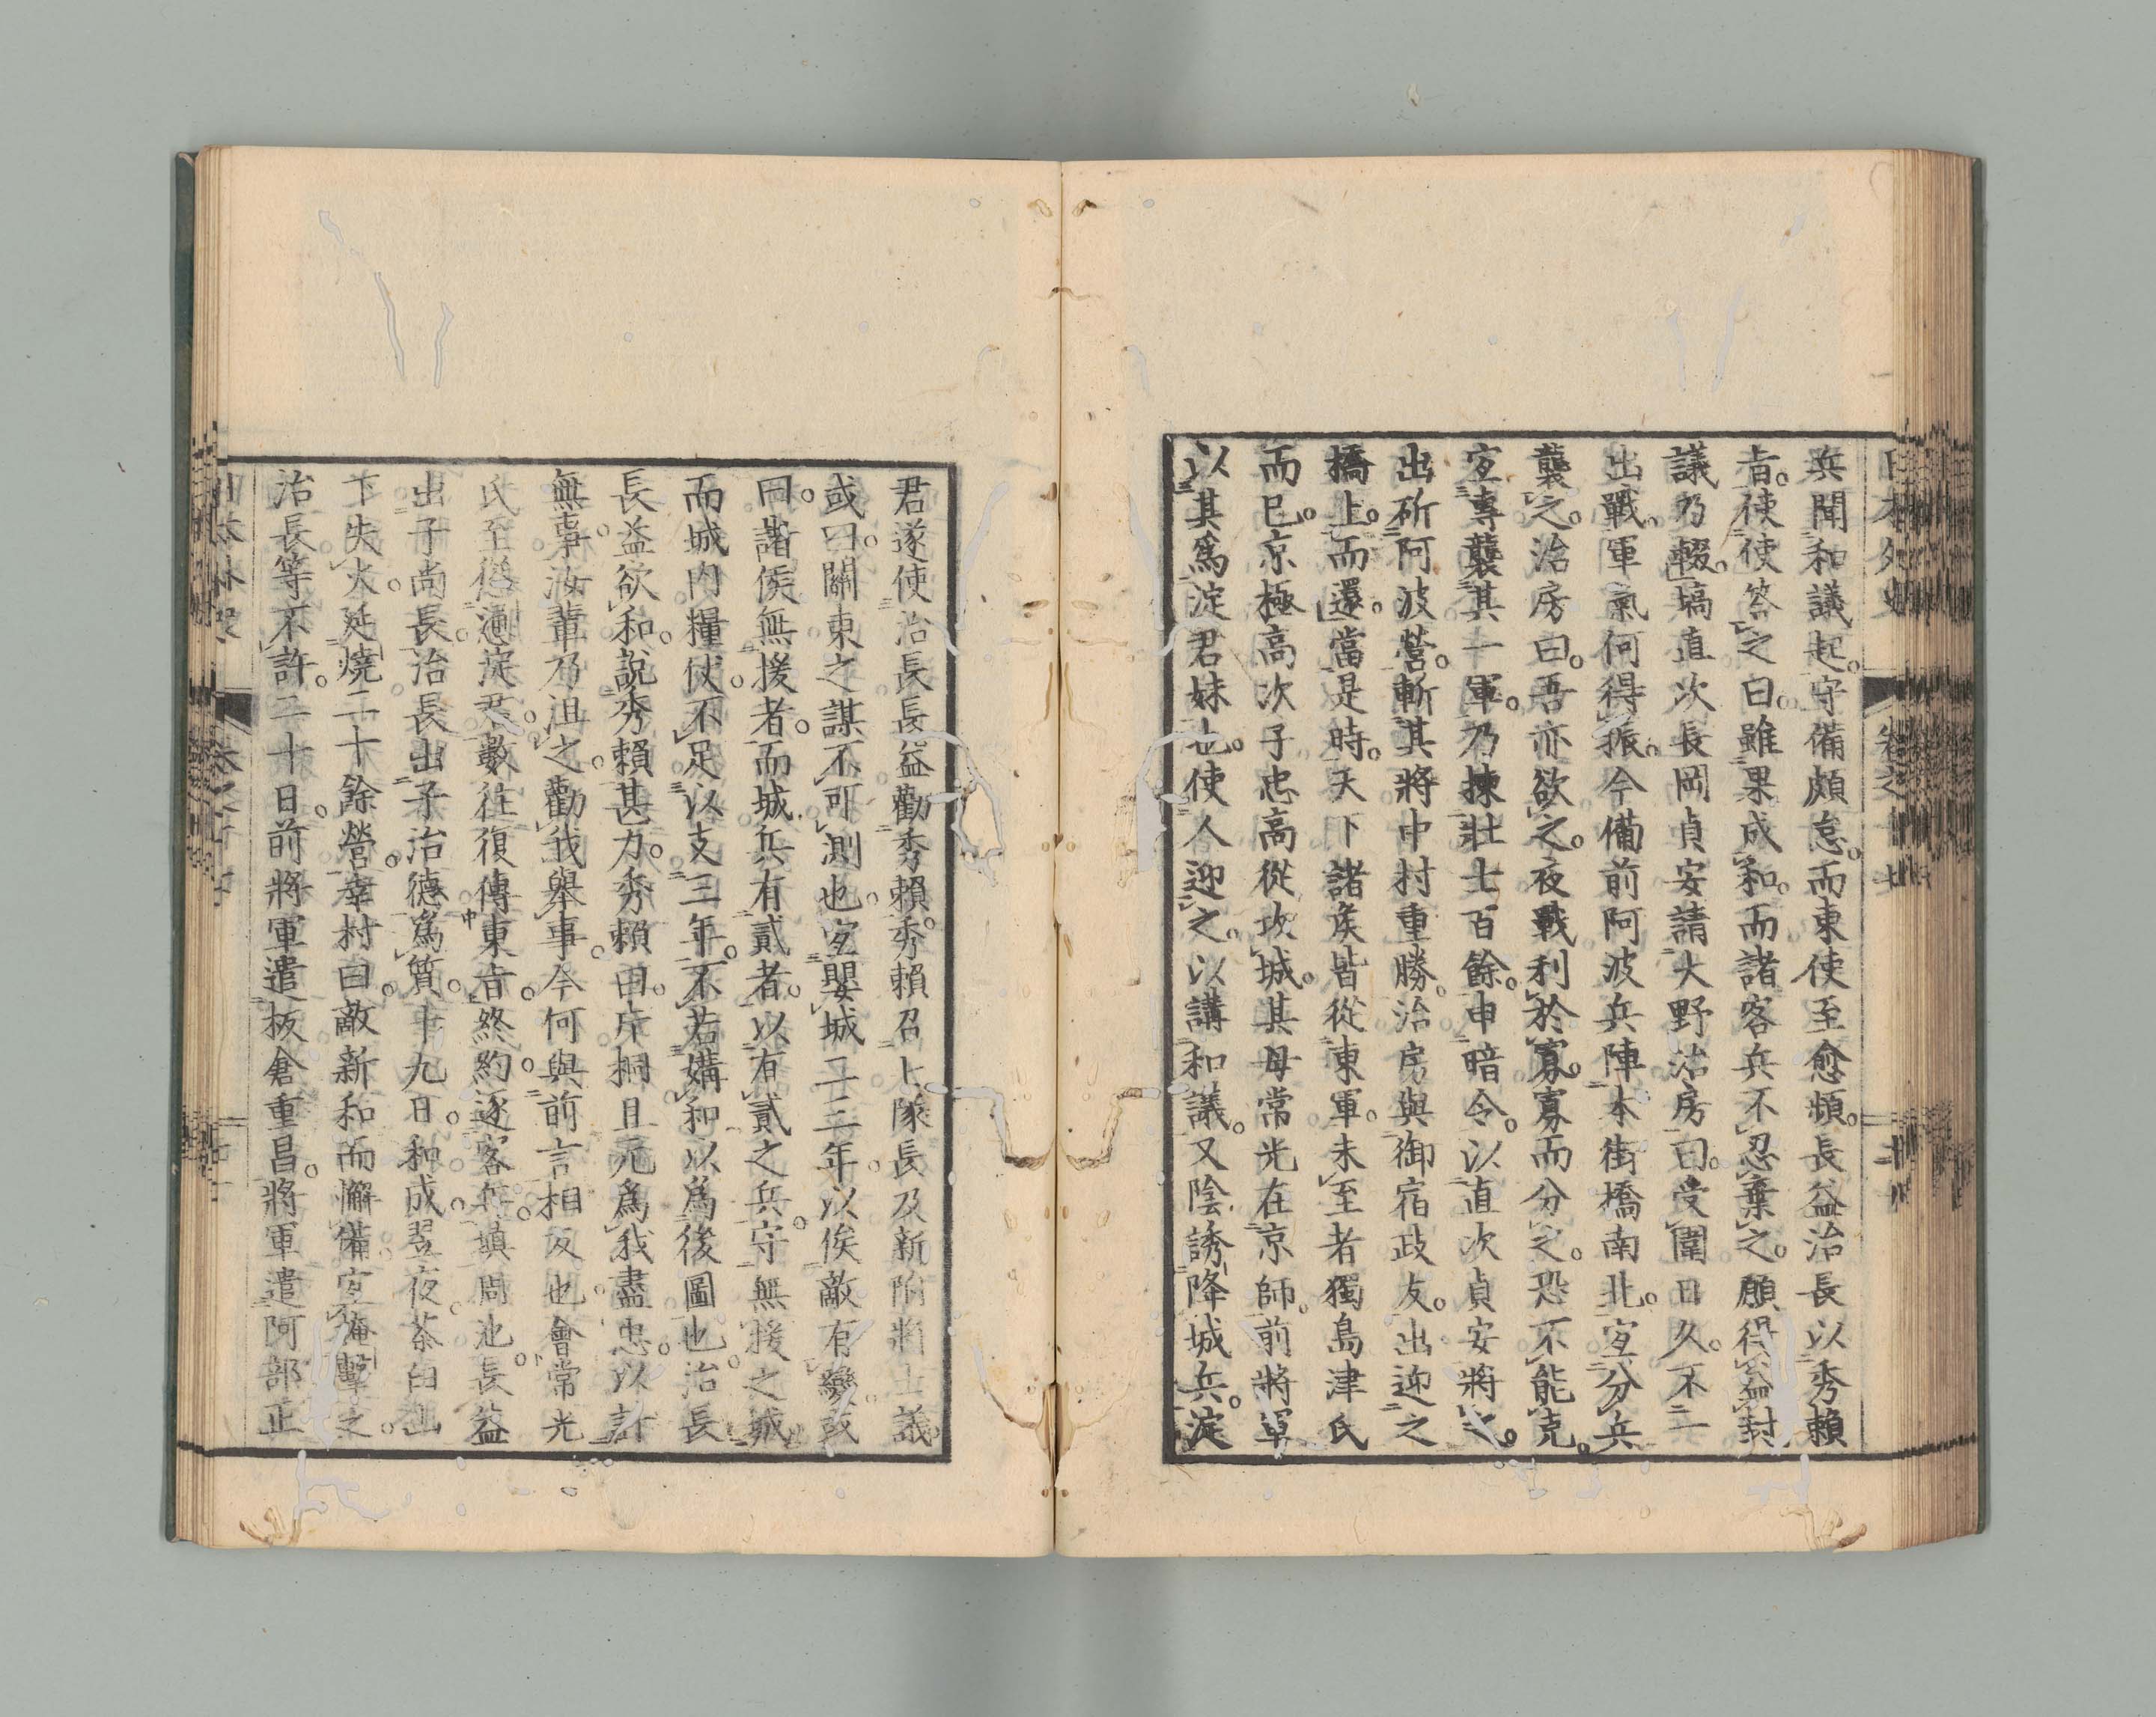 兵聞和議起。守備頗怠。而東使至愈頻。長益治長以秀賴
旨。使使答之曰。雖果成和。而諸客兵不忍棄之。願得益封
議乃輟。塙直次長岡貞安請大野治房曰。受圍日久。不一
出戰。軍氣何得振。今備前阿波兵陣本街橋南北。宜分兵
襲之。治房曰。吾亦欲之。夜戰利於寡。寡而分之。恐不能克。
宜專襲其一軍。乃揀壯士百餘。申暗令。以直次貞安將之。
出斫阿波營。斬其將中村重勝。治房與御宿政友。出迎之
橋上。而還。當是時。天下諸侯皆從東軍。未至者獨島津氏
而已。京極高次子忠高從攻城。其母常光在京師。前將軍
以其爲淀君妹也。使人迎之。以講和議。又陰誘降城兵。淀
君遂使治長長益勸秀賴。秀賴召七隊長及新附將士議。
或曰。關東之謀不可測也。宜嬰城二三年。以俟敵有變。或
曰。諸侯無援者。而城兵有貳者。以有貳之兵。守無援之城
而城内糧仗。不足以支三年。不若媾和以爲後圖也。治長
長益欲和。說秀賴甚力。秀賴曰。片桐且元爲我盡忠。以計
無事。汝輩乃沮之。勸我舉事。今何與前言相反也。會常光
氏至。慫慂淀君。數往復傳東旨。終約。逐客兵。塡周池。長益
出子尚長。治長出子治德爲質。十九日。和成。翌夜。茶臼山
下失火。延燒二十餘營。幸村曰。敵新和而懈備。宜掩擊之。
治長等不許。二十日。前將軍遣板倉重昌。將軍遣阿部正